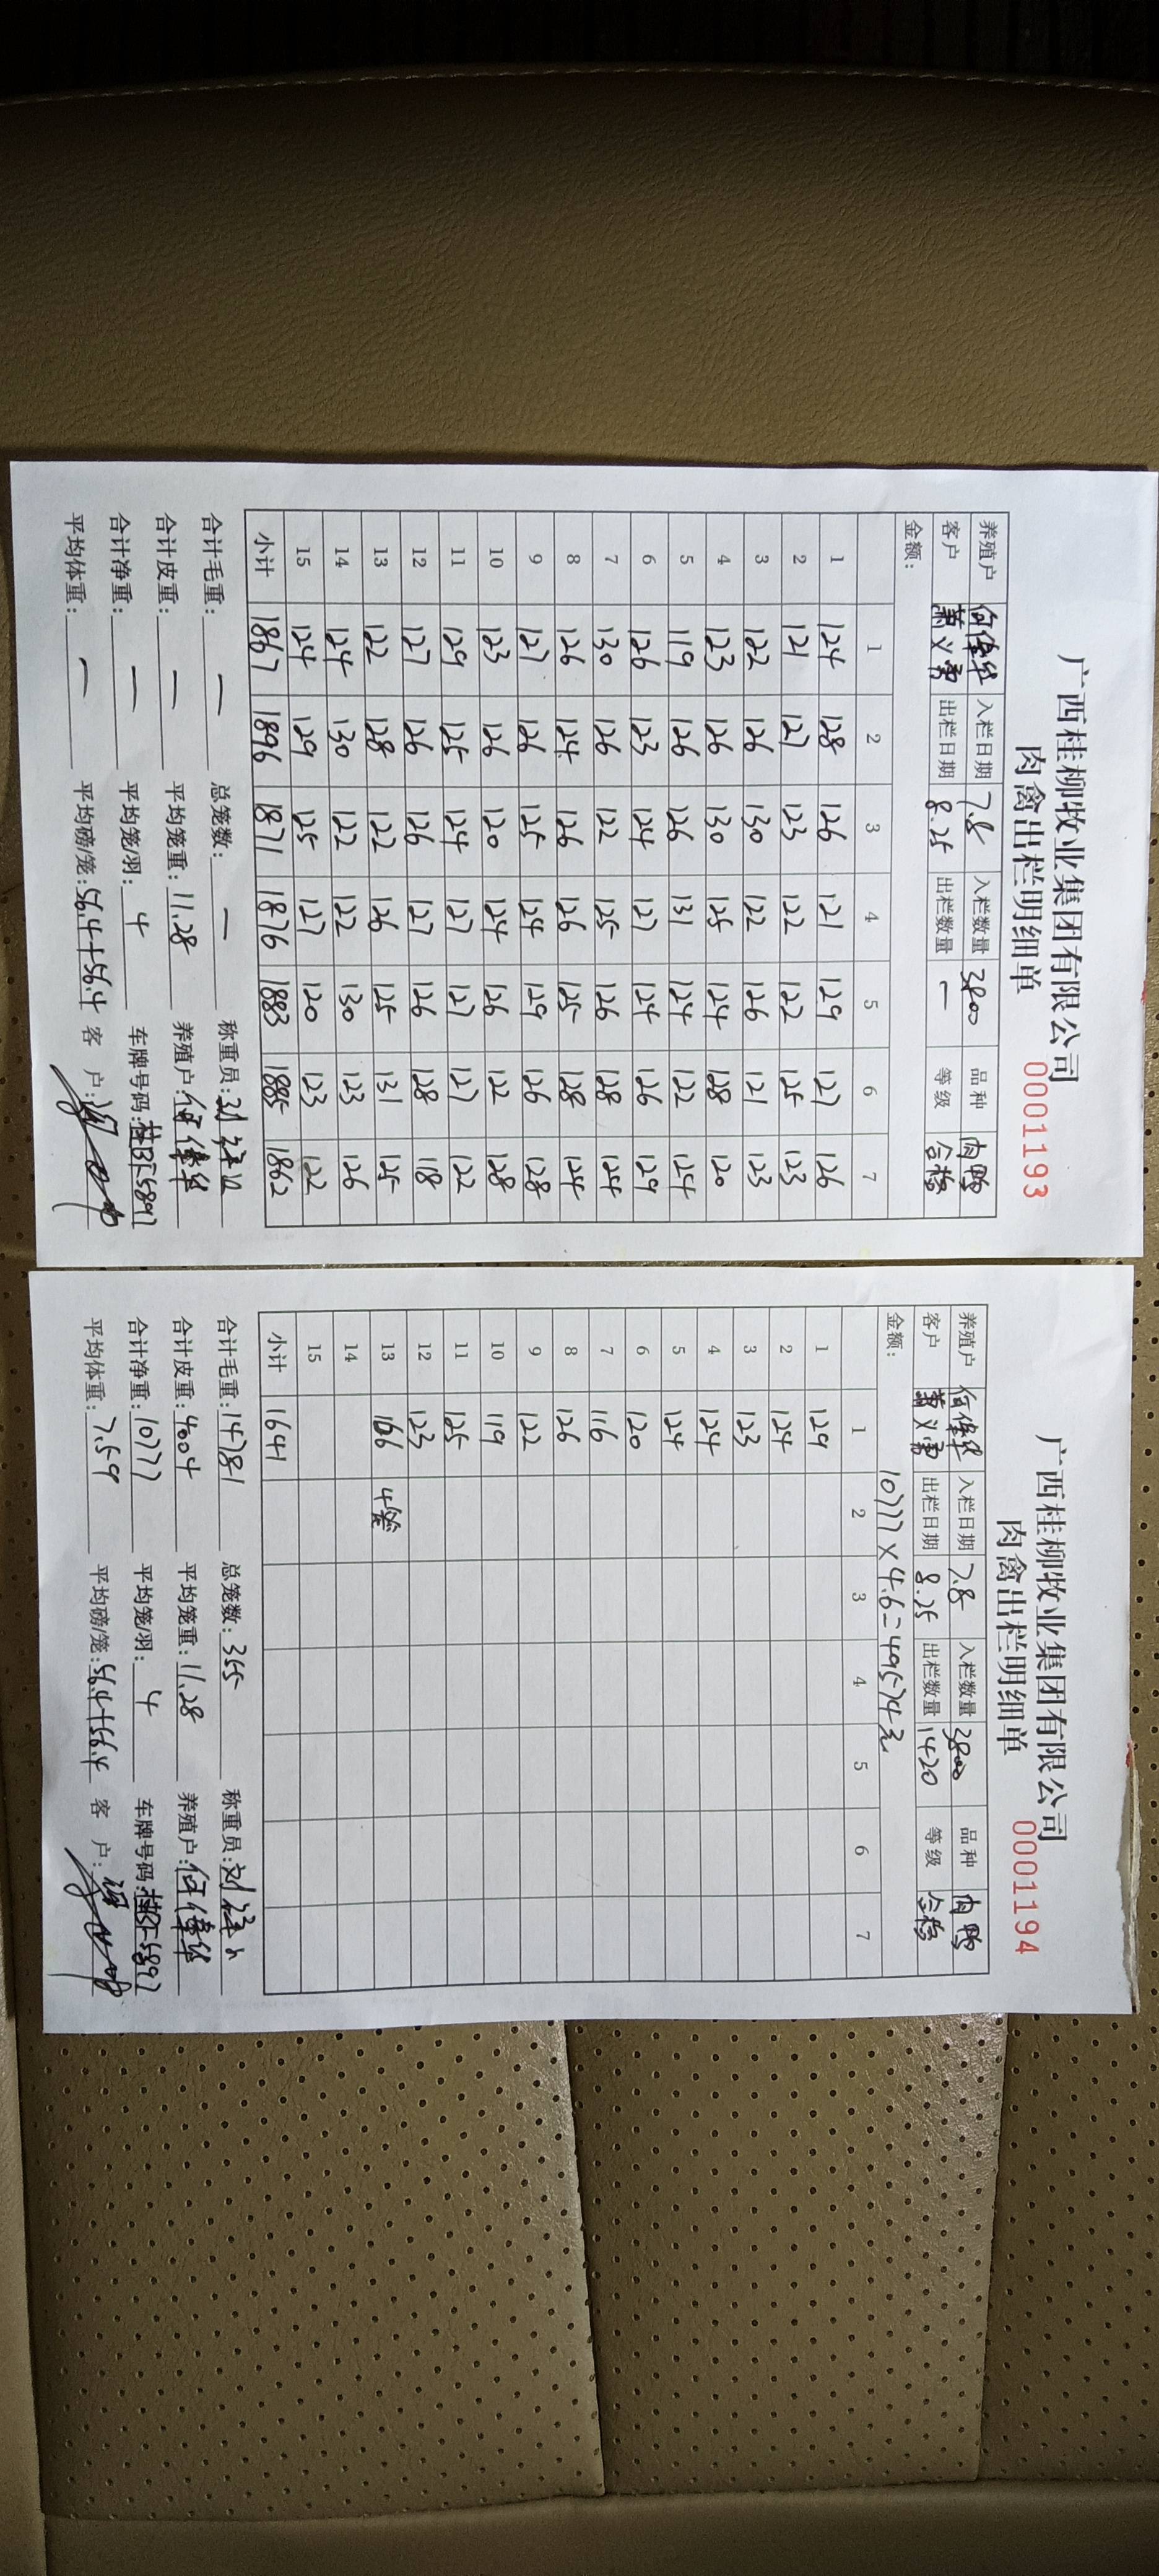 广西桂柳牧业集团有限公司
肉禽出栏明细单 0001193
养殖户 何伟华 入栏日期 7.8 入栏数量 3800 品种 肉鸭
客户 萧义勇 出栏日期 8.25 出栏数量 — 等级 合格
金额：
1 2 3 4 5 6 7
1 124 128 126 121 129 127 126
2 121 127 123 122 122 125 123
3 122 126 130 122 126 121 123
4 123 126 130 125 124 128 120
5 119 126 126 131 124 122 124
6 126 123 124 127 124 126 129
7 130 126 122 125 126 128 124
8 126 124 126 126 125 128 124
9 127 126 125 124 129 126 128
10 123 126 120 124 126 122 128
11 129 125 124 127 127 127 122
12 127 126 126 127 126 128 118
13 122 128 122 126 125 131 125
14 124 130 122 122 130 123 126
15 124 129 125 127 120 123 122
小计 1867 1896 1871 1876 1883 1885 1862
合计毛重：— 总笼数：— 称重员：刘
合计皮重：— 平均笼重：11.28 养殖户：何伟华
合计净重：— 平均笼/羽：4 车牌号码：
平均体重：— 平均磅/笼：56.4+56.4 客 户：
广西桂柳牧业集团有限公司
肉禽出栏明细单 0001194
养殖户 何伟华 入栏日期 7.8 入栏数量 3800 品种 肉鸭
客户 萧义勇 出栏日期 8.25 出栏数量 1420 等级 合格
金额： 10777×4.6=49574元
1 2 3 4 5 6 7
1 129
2 124
3 123
4 124
5 124
6 120
7 116
8 126
9 122
10 119
11 125
12 123
13 166 4笼
14
15
小计 1641
合计毛重：14781 总笼数：355 称重员：刘
合计皮重：4004 平均笼重：11.28 养殖户：何伟华
合计净重：10777 平均笼/羽：4 车牌号码：
平均体重：7.59 平均磅/笼：56.4+56.4 客 户：